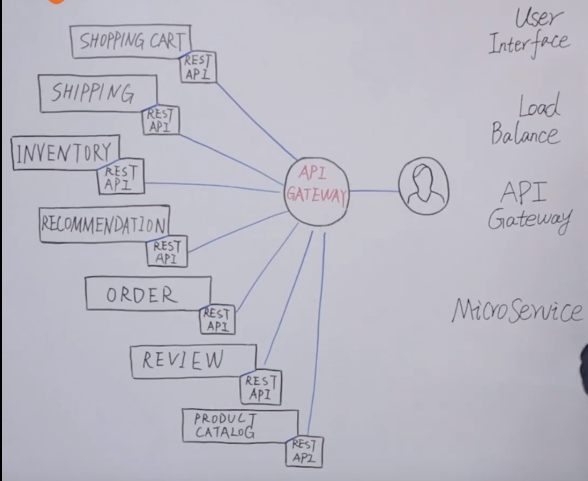 SHOPPING CART
REST
API
SHIPPING
REST
API
INVENTORY
REST
API
RECOMMENDATION
REST
API
ORDER
REST
API
REVIEW
REST
API
PRODUCT
CATALOG
REST
API
API
GATEWAY
User
Interface
Load
Balance
API
Gateway
MicroService